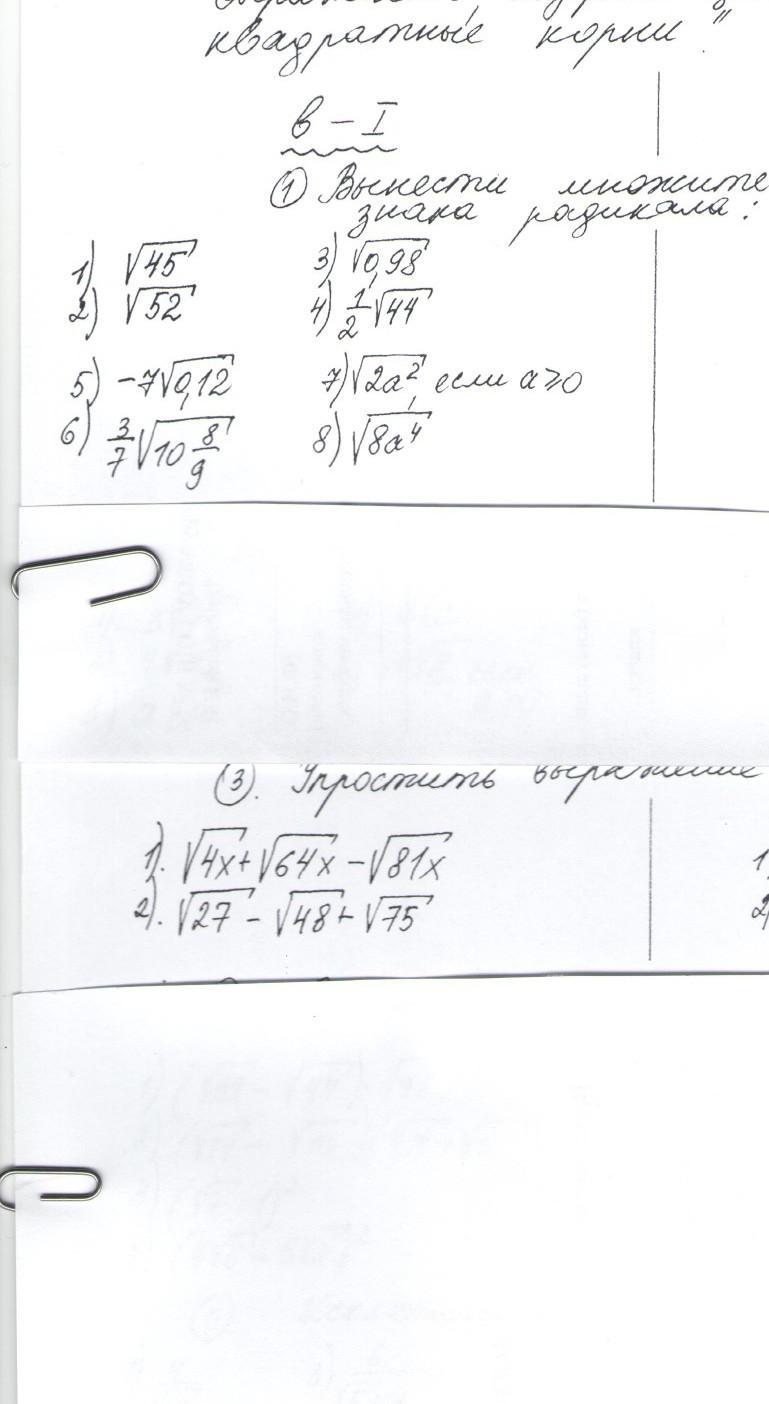 квадратные корни".
в - I
① Вынести множите
знака радикала:
1) √45
2) √52
3) √0,98
4) 1/2 √44
5) -7√0,12
6) 3/7 √10 8/9
7) √2a², если a⩾0
8) √8a⁴
③. Упростить выражение
1). √4x + √64x - √81x
2). √27 - √48 + √75
1)
2)